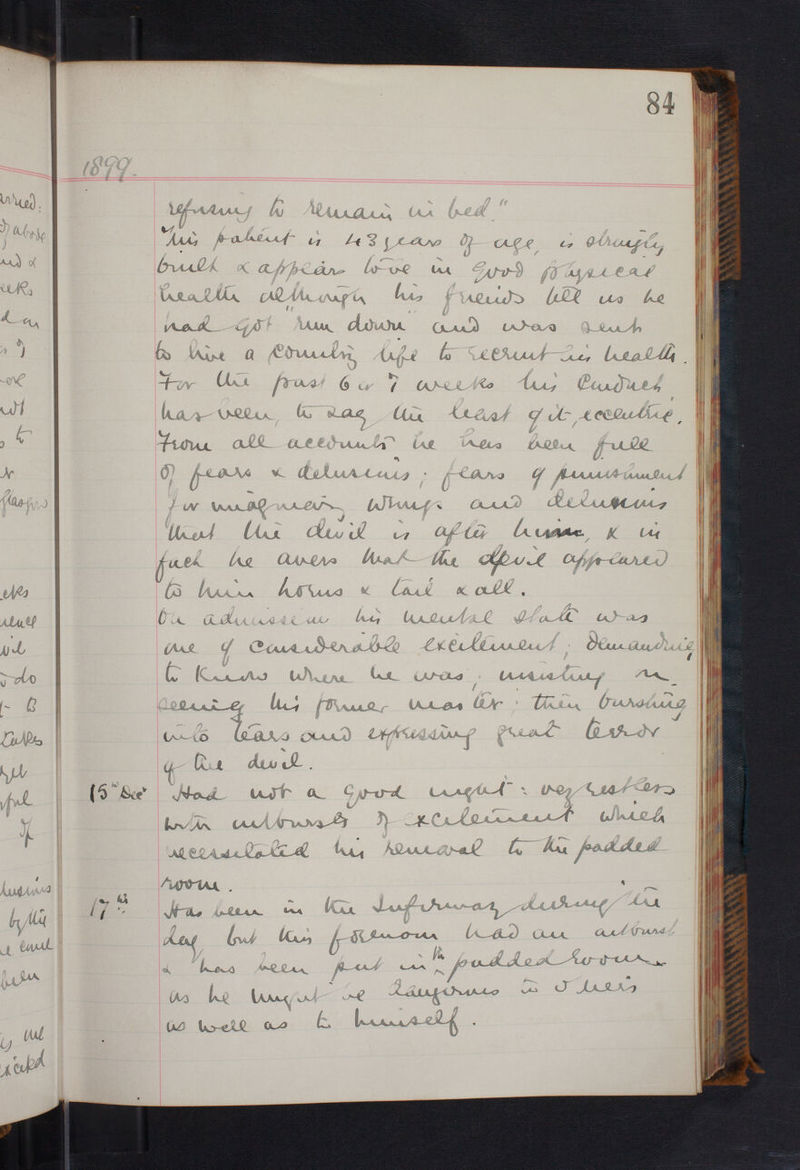 84
1899.
refusing to remain in bed."
This patient is 43 years of age, is strongly
built & appears to be in good physical
health although his friends tell us he
had got "run down" and was sent
to live a country life to recruit his health.
For the past 6 or 7 weeks his conduct
has been, to say the least of it, eccentric.
From all accounts he has been full
of fears & delusions; fears of punishment
for imaginary wrongs and delusions
that the devil is after him, & in
fact he avers that the devil appeared
to him horns & tail & all.
On admission his mental state was
one of considerable excitement; demanding
to know where he was; insisting on
seeing his former master; then bursting
into tears and expressing great terror
of the devil.
15th Decr Had not a good night: very restless
with outbursts of excitement which
necessitated his removal to the padded
room.
17th Has been in the Infirmary during the
day but this forenoon had an outburst
& has been put in the padded room
as he might be dangerous to others
as well as to himself.